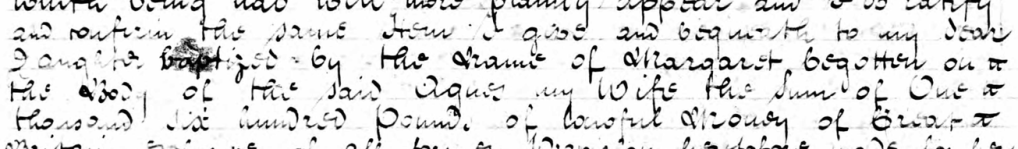 being had will more plainly appear and I do ratify
and confirm the same Item I give and bequeath to my Dear
Daughter baptized by the Name of Margaret begotten on
the Body of the said Agnes my Wife the Sum of One
thousand six hundred Pounds of lawful Money of Great